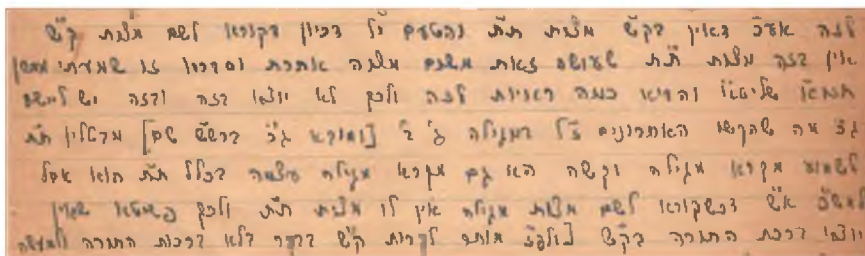 לזה אעפ״כ דאין בק״ש מצות ת״ת והטעם י״ל דכיון דקורא לשם מצות ק״ש
אין בזה מצות ת״ת שעושה זאת משום מצוה אחרת וסברה זו שמעתי ממרן
שליט״א והביא כמה ראיות לזה ולכך לא יוצא בזה ובזה יש ליישב
ג״כ מה שהקשו האחרונים ז״ל במגילה ג׳ ב׳ [ומובא ג״כ ברש״ש שם] מבטלין ת״ת
לשמוע מקרא מגילה וקשה הא גם מקרא מגילה עצמה בכלל ת״ת הוא אבל
למש״כ א״ש דכשקורא לשם מצות מגילה אין לו מצות ת״ת ולכך פשוט שאין
יוצא ברכת התורה בק״ש [ולפ״ז מותר לקרות ק״ש בבקר בלא ברכות התורה ולמעשה